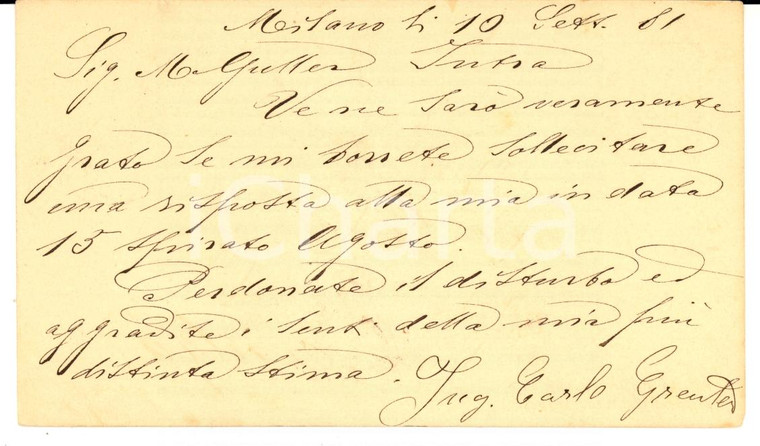 Milano li 10 Sett. 81
Sig. M. Gutter Intra
Ve ne sarò veramente
grato se mi vorrete sollecitare
una risposta alla mia in data
15 spirato Agosto.
Perdonate il disturbo ed
aggradite i sent. della mia più
distinta stima.
Ing. Carlo
iCharta